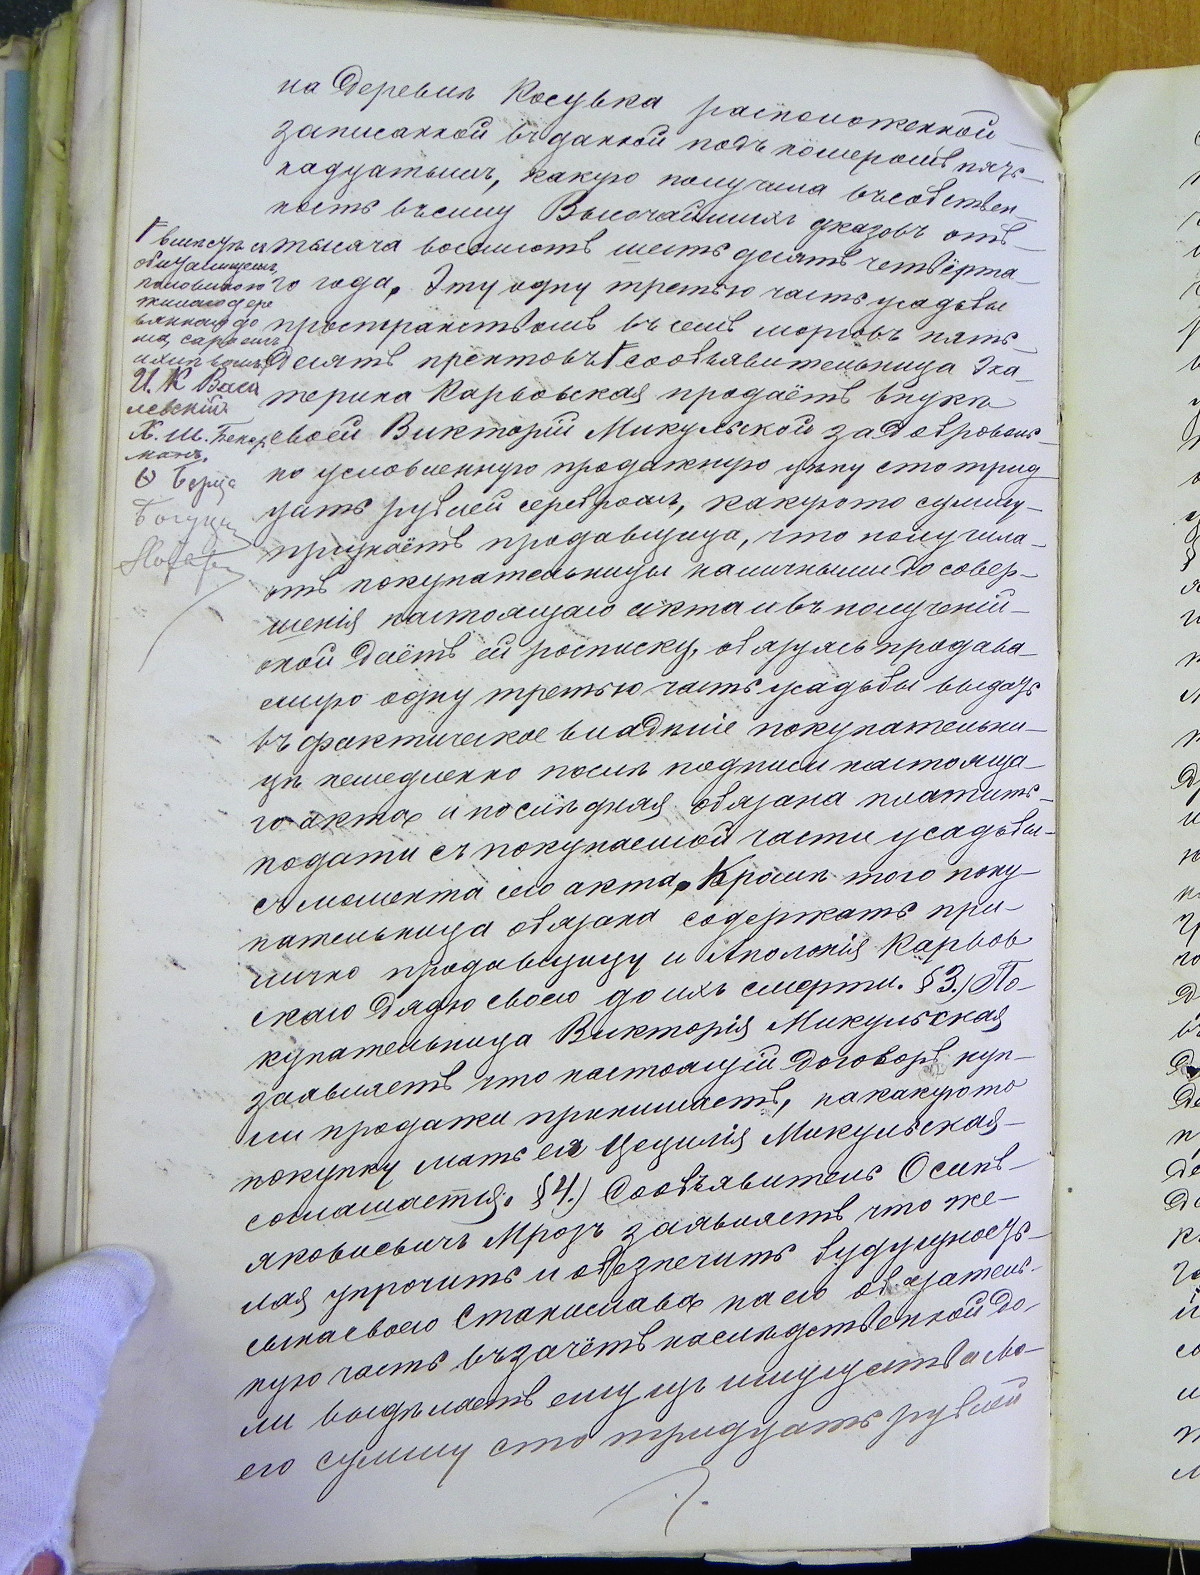 на деревнѣ Косувка расположенной
записанной въ данной подъ номеромъ пят-
надцатымъ, какую получила въ собствен-
ность въ силу Высочайшихъ указовъ отъ
тысяча восемьсотъ шестьдесятъ четвёрта-
го года. Эту одну третью часть усадьбы
пространствомъ въ семь морговъ пять-
десятъ прентовъ Г сообъявительница Ека-
терина Карвовская продаётъ внукѣ
своей Викторіи Микульской за добровольно
но условленную продажную цѣну сто трид
цать рублей серебромъ, какую то сумму
признаётъ продавщица, что получила
отъ покупательницы наличными до совер-
шенія настоящаго акта и въ полученіи
оной даётъ ей росписку, обязуясь продава
емую одну третью часть усадьбы выдать
въ фактическое владѣніе покупательни-
цѣ немедленно послѣ подписи настояща-
го акта и послѣдняя обязана платить
подати съ покупаемой части усадьбы
съ момента сего акта. Кромѣ того поку-
пательница обязана содержать при-
лично продавщицу и Аполонія Карвов
скаго дядю своего до ихъ смерти. § 3.) По-
купательница Викторія Микульская
заявляетъ что настоящій договоръ куп-
ли продажи принимаетъ, на какую то
покупку мать ея Цецилія Микульская
соглашается. § 4.) Сообъявитель Осипъ
Яковлевичъ Мрозъ заявляетъ что же-
лая упрочить и обезпечить будущность
сына своего Станислава на его обязатель-
ную часть въ зачётъ наслѣдственной до-
ли выдѣляетъ ему изъ имущества сво-
его сумму сто тридцать рублей
Г вмѣстѣ съ
обитаемою
половиною
жилаго дере
вяннаго до
ма, сараемъ
и хлѣвомъ
И. К Васи
левскій
Х. Ш. Бекер
манъ.